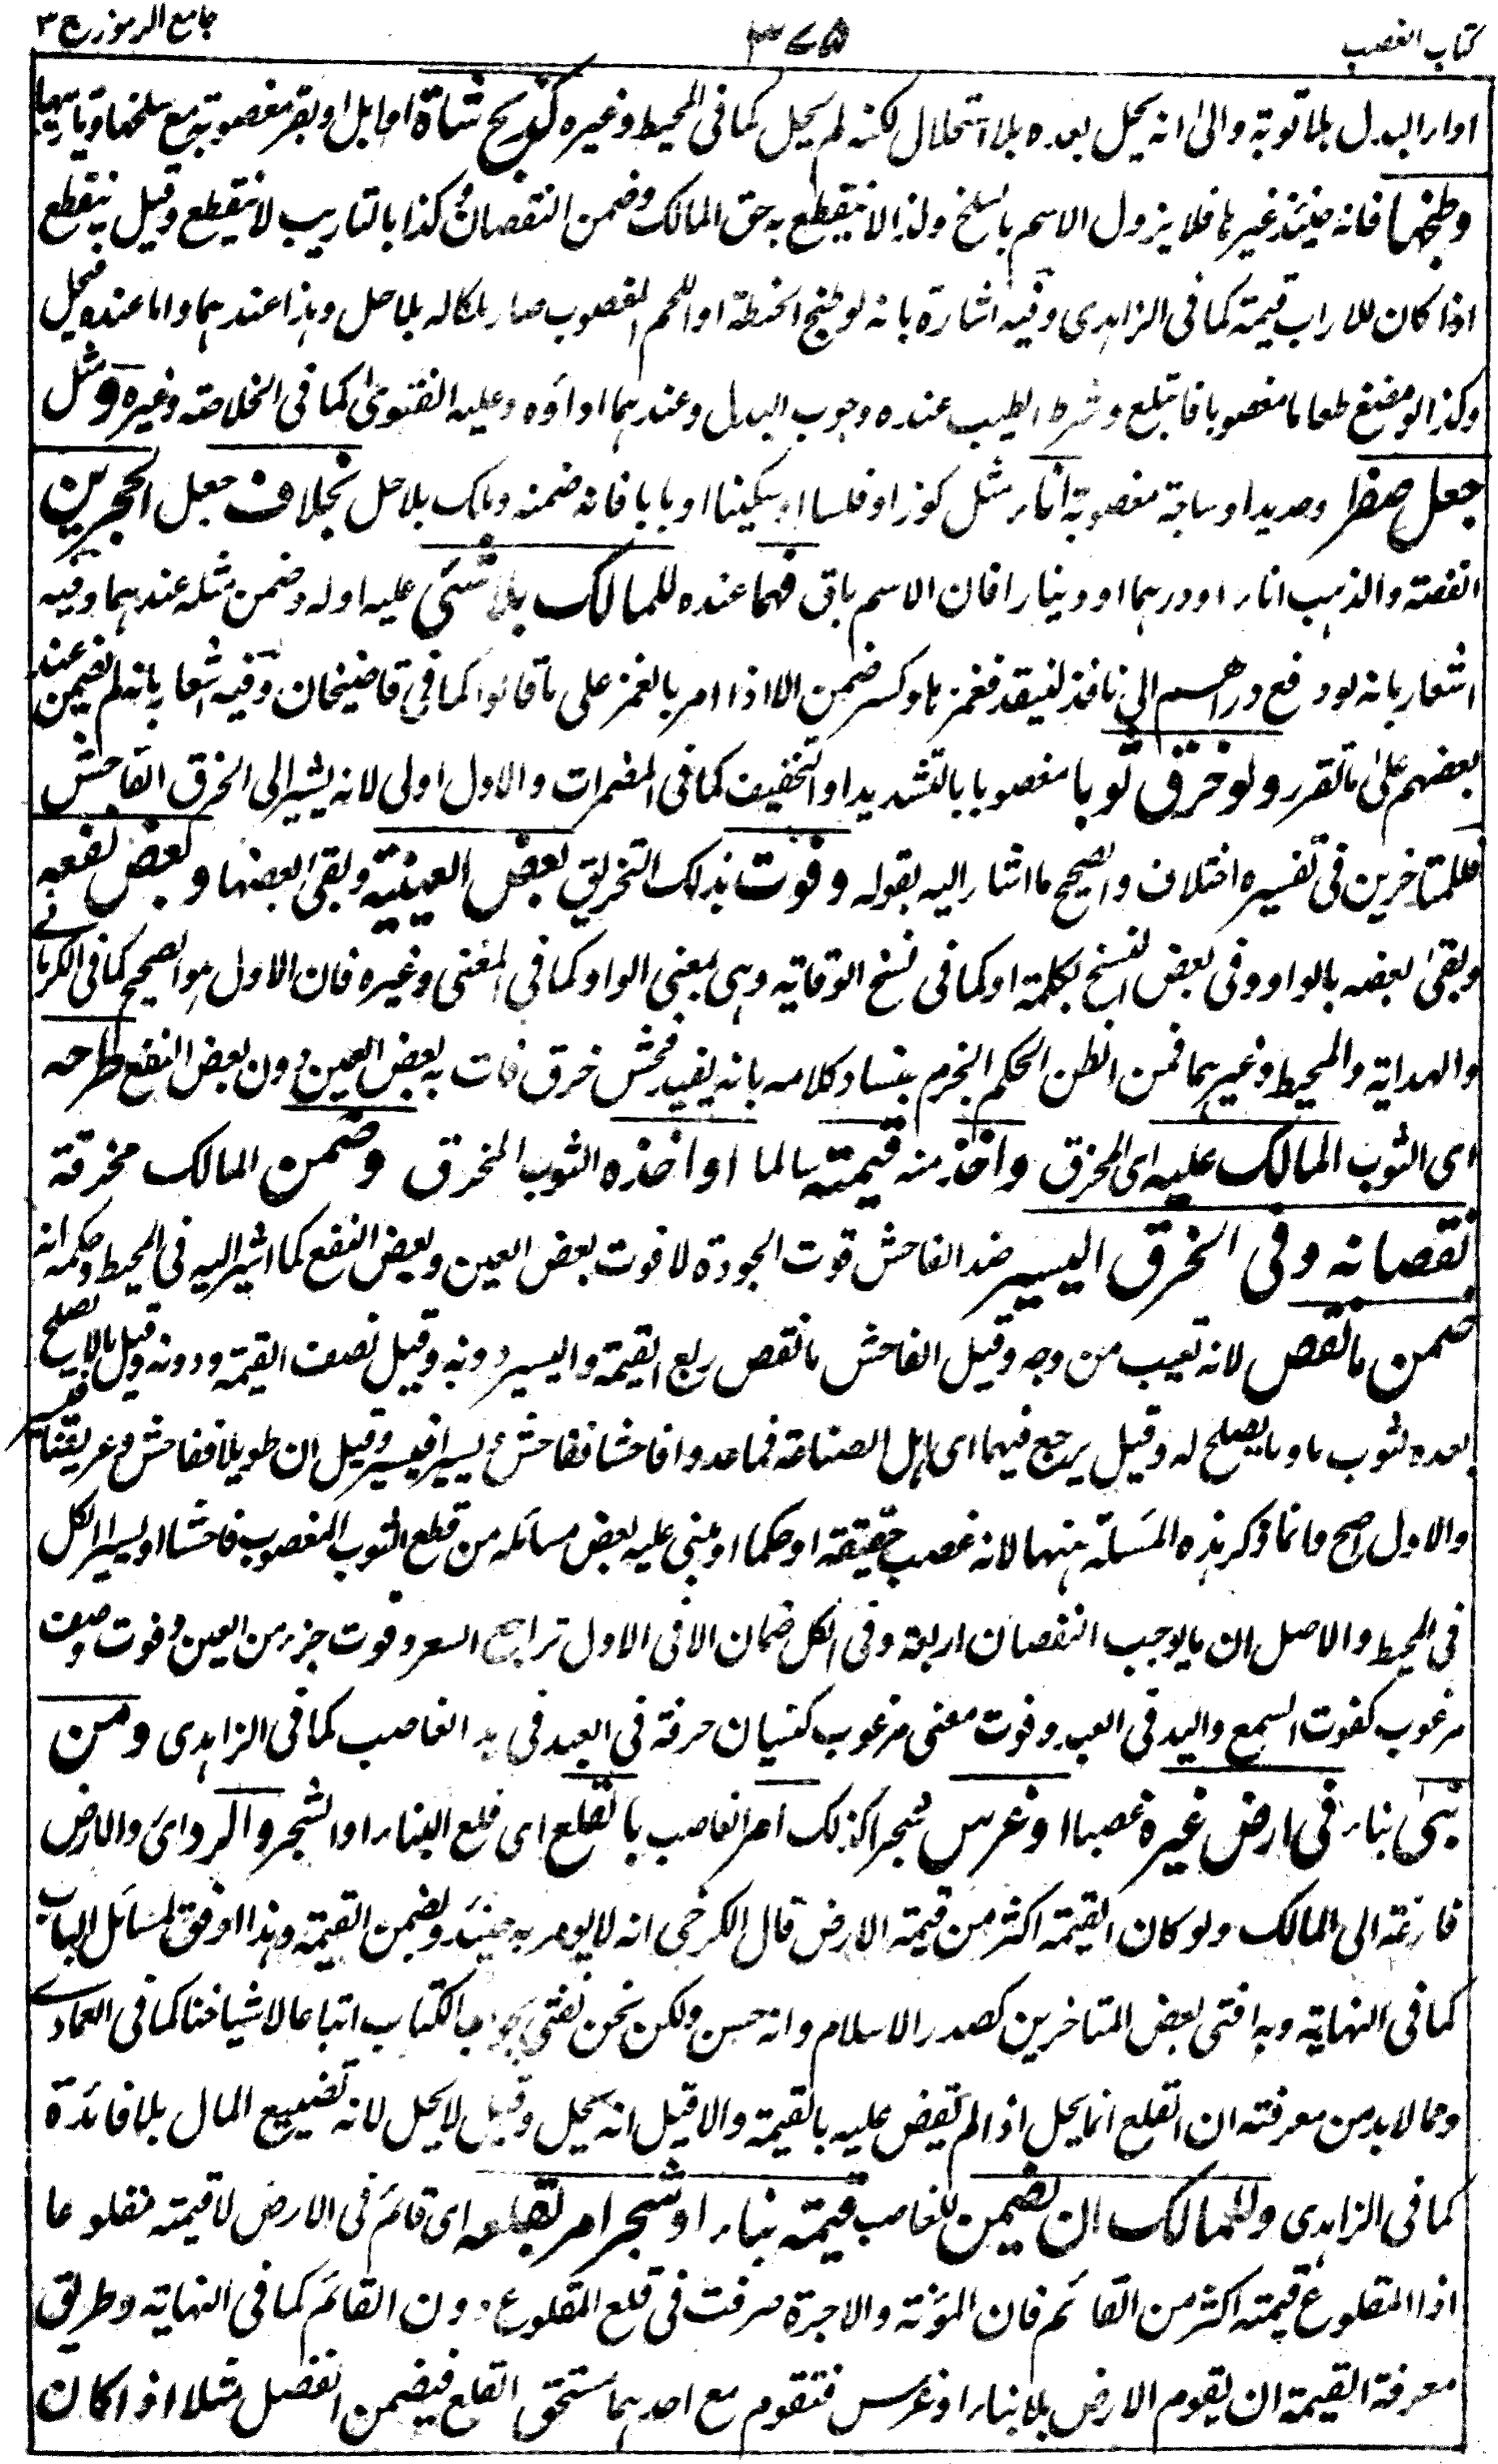 كتاب الغصب ٣٧٥ جامع الرموز ج ٣
اداء البدل بلا توبة والى انه يحل بعده بلا استحلال لكنه لم يحل كما فى المحيط وغيره كذبح شاة او ابل او بقر مغصوبة مع سلخها وتاريبها
وطبخها فانه حينئذ غيرها فلا يزول الاسم بالسلخ ولذا لا ينقطع به حق المالك وضمن النقصان وكذا بالتاريب لا ينقطع وقيل ينقطع
اذا كان للاراب قيمة كما فى الزاهدى وفيه اشارة بانه لو طبخ الحنطة او اللحم المغصوب صار ملكا له بلا حل وهذا عندهما واما عنده فيحل
وكذا لو مضغ طعاما مغصوبا فابتلع وشرط الطيب عنده وجوب البدل وعندهما اداؤه وعليه الفتوى كما فى الخلاصة وغيره ومثل
جعل صفرا وحديدا وساجة مغصوبة اناء مثل كوز او فلسا او سكينا او بابا فانه ضمنه وملك بلا حل بخلاف جعل الحجرين
الفضة والذهب اناء او درهما او دينارا فان الاسم باق فهما عنده للمالك بلا شئ عليه اوله وضمن مثله عندهما وفيه
اشعار بانه لو دفع دراهم الى ناقد لينقد فغمزها وكسر ضمن الا اذا امر بالغمز على ما قالوا كما فى قاضيخان وفيه اشعار بانه لم يضمن عند
بعضهم على ما تقرر ولو خرق ثوبا مغصوبا بالتشديد او التخفيف كما فى المضمرات والاول اولى لانه يشير الى الخرق الفاحش
فللمتاخرين فى تفسيره اختلاف والصحيح ما اشار اليه بقوله وفوت بذلك التخريق بعض العينية وبقى بعضها وبعض نفعه
وبقى بعضه بالواو وفى بعض النسخ بكلمة او كما فى نسخ الوقاية وهى بمعنى الواو كما فى المغنى وغيره فان الاول هو الصحيح كما فى الكرمانے
والهداية والمحيط وغيرهما فمن الظن الحكم الجزم بفساد كلامه بانه يفيد فحش خرق فات به بعض العين دون بعض النفع طرحه
اى الثوب المالك عليه اى المخرق واخذ منه قيمته سالما او اخذه الثوب المخرق وضمن المالك مخرقة
نقصانه وفى الخرق اليسير ضد الفاحش فوت الجودة لا فوت بعض العين وبعض النفع كما اشير اليه فى المحيط وحكمه انه
ضمن ما نقص لانه تعيب من وجه وقيل الفاحش ما نقص ربع القيمة واليسير دونه وقيل نصف القيمة ودونه وقيل ما لا يصلح
بعده لثوب ما وما يصلح له وقيل يرجع فيهما اى اهل الصناعة فما عدوا فاحشا ففاحش ويسيرا فيسير وقيل ان طويلا ففاحش وعريضا فيسير
والاول اصح وانما ذكر هذه المسئلة ههنا لانه غصب حقيقة او حكما او يبنى عليه بعض مسائله من قطع الثوب المغصوب فاحشا او يسيرا الكل
فى المحيط والاصل ان ما يوجب النقصان اربعة وفى الكل ضمان الا فى الاول تراجع السعر وفوت جزء من العين وفوت وصف
مرغوب كفوت السمع واليد فى العبد وفوت معنى مرغوب كنسيان حرفة فى العبد فى يد الغاصب كما فى الزاهدى ومن
بنى بناء فى ارض غيره غصبا او غرس شجرا كذلك امر الغاصب بالقلع اى قلع البناء او الشجر والرد اى والارض
فارغة الى المالك ولو كان القيمة اكثر من قيمة الارض قال الكرخى انه لا يومر به حينئذ ويضمن القيمة وهذا اوفق لمسائل الباب
كما فى النهاية وبه افتى بعض المتاخرين كصدر الاسلام وانه حسن ولكن نحن نفتى بجواب الكتاب اتباعا لاشياخنا كما فى العمادے
ومما لا بد من معرفته ان القلع انما يحل اذا لم يقض عليه بالقيمة والا قيل انه يحل وقيل لا يحل لانه تضييع المال بلا فائدة
كما فى الزاهدى وللمالك ان يضمن للغاصب قيمته بناء او شجر امر بقلعه اى قائم فى الارض لا قيمته مقلوعا
اذا المقلوع قيمته اكثر من القائم فان المؤنة والاجرة صرفت فى قلع المقلوع دون القائم كما فى النهاية وطريق
معرفة القيمة ان يقوم الارض بلا بناء او غرس فتقوم مع احدهما مستحق القلع فيضمن الفضل مثلا اذا كان